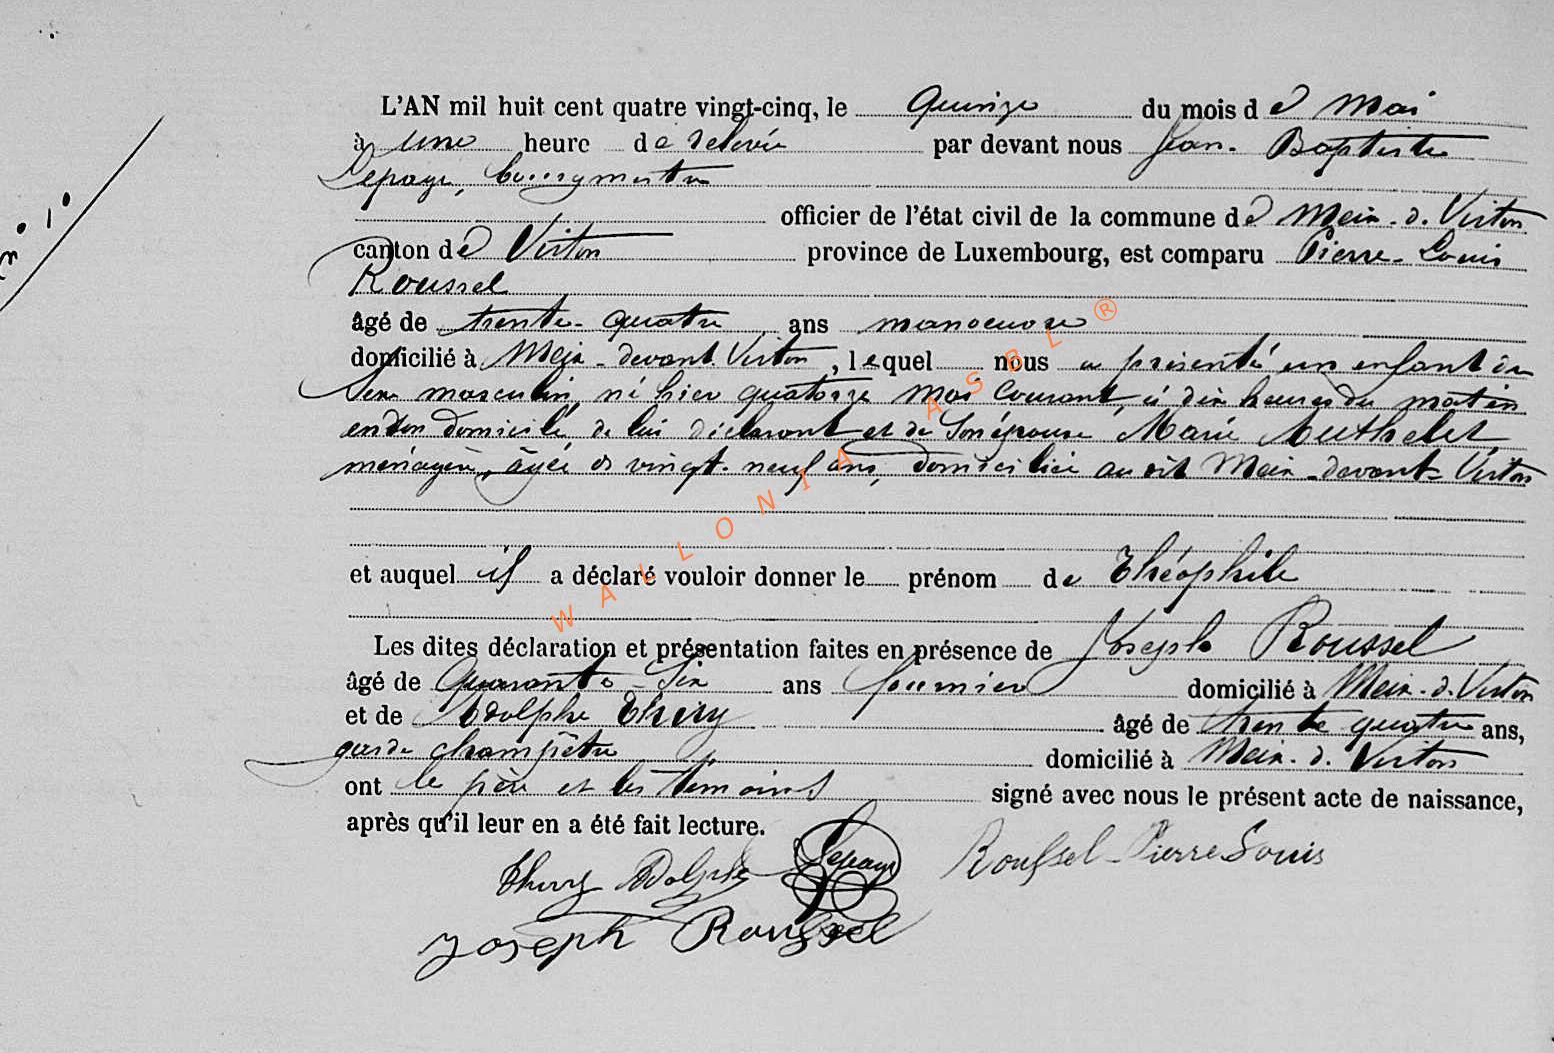 L'AN mil huit cent quatre vingt-cinq, le Quinze du mois de Mai
à une heure de relevée par devant nous Jean-Baptiste
Lepage, bourgmestre
officier de l'état civil de la commune de Meix-d.Virton
n° 10
canton de Virton province de Luxembourg, est comparu Pierre-Louis
Roussel
âgé de trente-quatre ans manoeuvre
domicilié à Meix-devant Virton, lequel nous a présenté un enfant du
Sexe masculin, né hier quatorze Mai Courant, à dix heures du matin
en son domicile, de lui déclarant et de Son épouse Marie Muthelet,
ménagère, âgée de vingt-neuf ans, domiciliée au dit Meix-devant-Virton
et auquel il a déclaré vouloir donner le prénom de Théophile
Les dites déclaration et présentation faites en présence de Joseph Roussel
âgé de Quarante-Six ans domicilié à Meix-d.Virton
et de Adolphe Thiry âgé de trente quatre ans,
garde champêtre domicilié à Meix-d.Virton
ont le père et les témoins signé avec nous le présent acte de naissance,
après qu'il leur en a été fait lecture.
Thiry Adolphe Lepage Roussel Pierre Louis
Joseph Roussel
WALLONIA ASBL ®